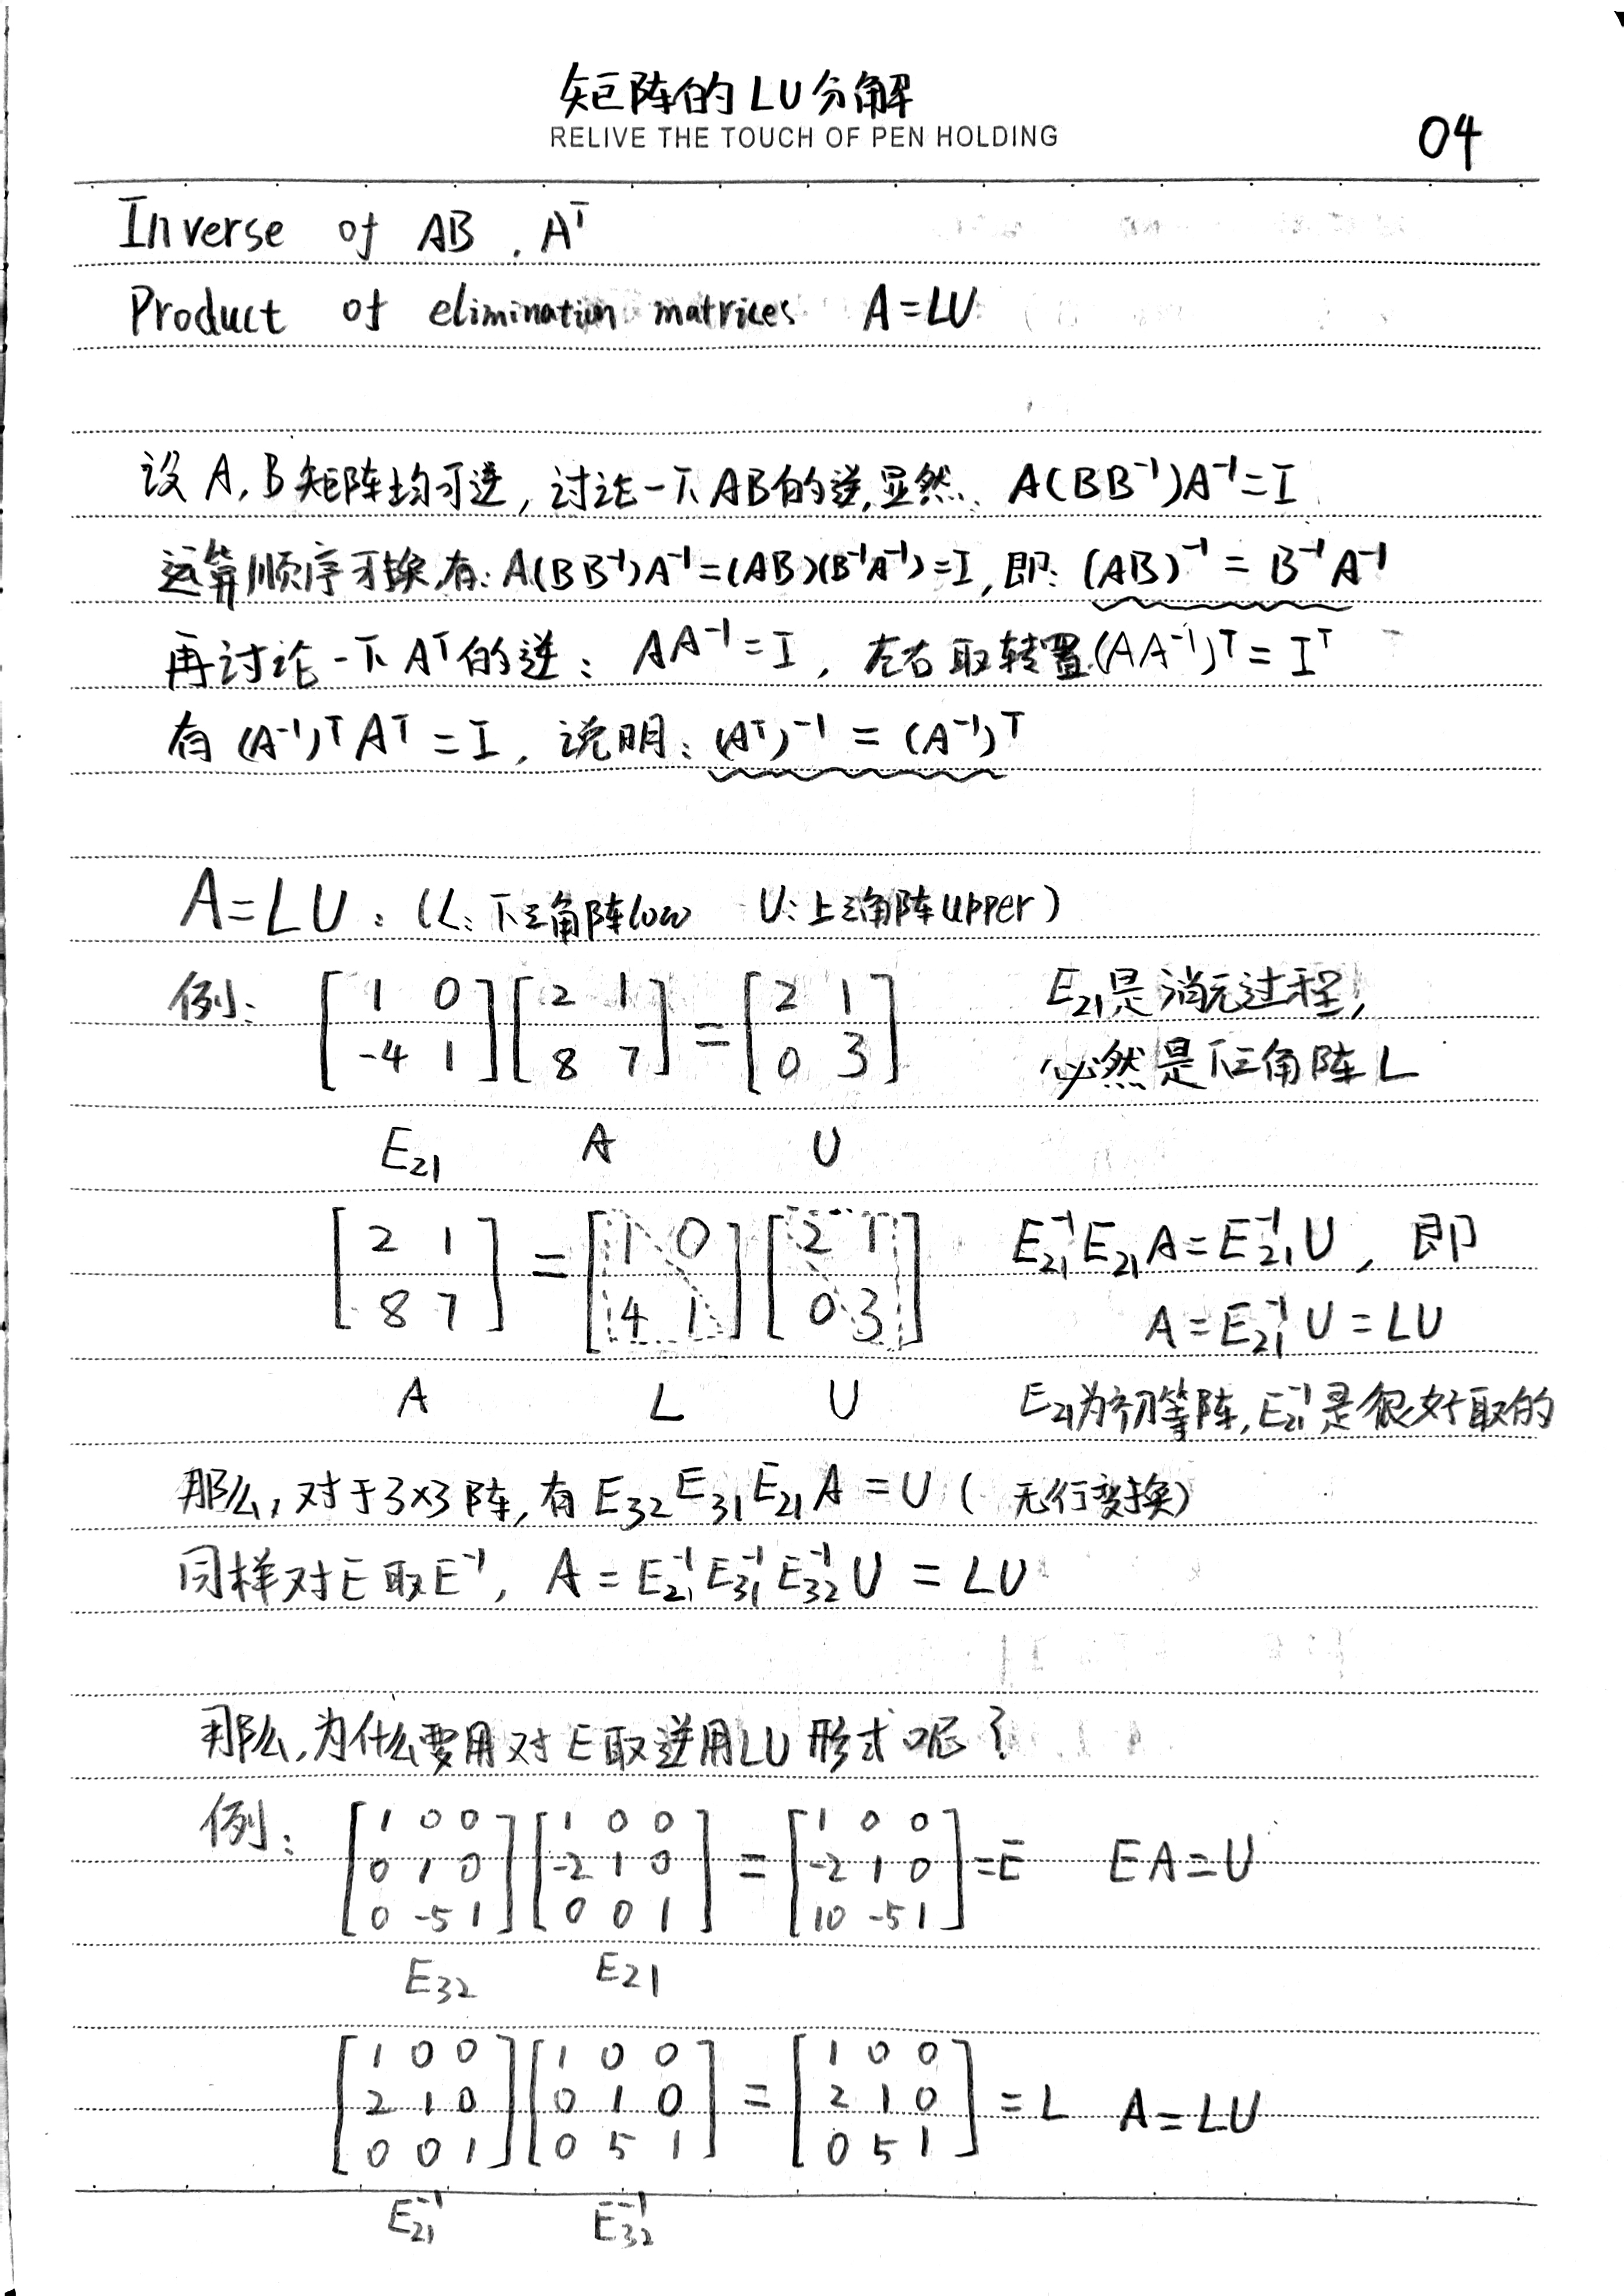 矩阵的LU分解
RELIVE THE TOUCH OF PEN HOLDING
04
Inverse of AB , Aᵀ
Product of elimination matrices A=LU
设A,B矩阵均可逆,讨论一下AB的逆,显然: A(BB⁻¹)A⁻¹=I
运算顺序可换,有: A(BB⁻¹)A⁻¹=(AB)(B⁻¹A⁻¹)=I,即: (AB)⁻¹ = B⁻¹A⁻¹
再讨论一下Aᵀ的逆: AA⁻¹=I, 左右取转置(AA⁻¹)ᵀ= Iᵀ
有(A⁻¹)ᵀAᵀ=I, 说明: (Aᵀ)⁻¹ = (A⁻¹)ᵀ
A=LU: (L: 下三角阵low U: 上三角阵upper)
例: [1 0; -4 1][2 1; 8 7]=[2 1; 0 3]
E₂₁ A U
E₂₁是消元过程,
必然是下三角阵L
[2 1; 8 7]=[1 0; 4 1][2 1; 0 3]
A L U
E₂₁⁻¹E₂₁A=E₂₁⁻¹U, 即
A=E₂₁⁻¹U=LU
E₂₁为初等阵,E₂₁⁻¹是很好取的
那么,对于3×3阵,有E₃₂E₃₁E₂₁A=U (无行变换)
同样对E取E⁻¹, A=E₂₁⁻¹E₃₁⁻¹E₃₂⁻¹U = LU
那么,为什么要用对E取逆用LU形式呢?
例: [1 0 0; 0 1 0; 0 -5 1][1 0 0; -2 1 0; 0 0 1]=[1 0 0; -2 1 0; 10 -5 1]=E EA=U
E₃₂ E₂₁
[1 0 0; 2 1 0; 0 0 1][1 0 0; 0 1 0; 0 5 1]=[1 0 0; 2 1 0; 0 5 1]=L A=LU
E₂₁⁻¹ E₃₂⁻¹